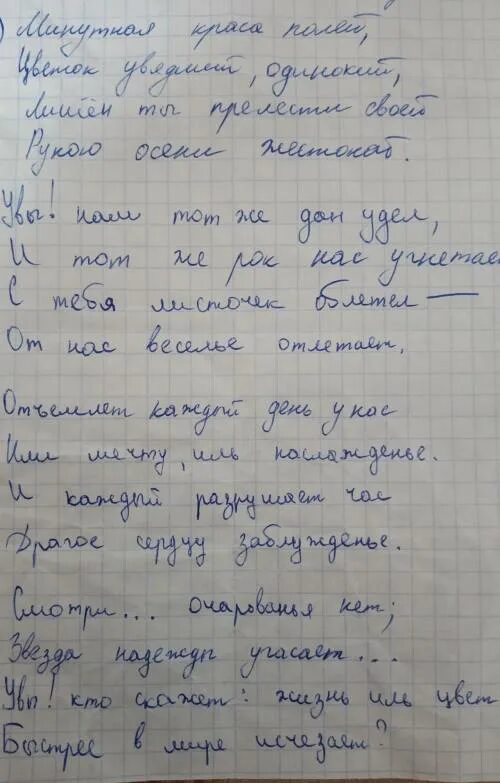 ) Минутная краса полей,
Цветок увядший, одинокий,
Лишён ты прелести своей
Рукою осени жестокой.
Увы! нам тот же дан удел,
И тот же рок нас угнетает
С тебя листочек облетел —
От нас веселье отлетает.
Отъемлет каждый день у нас
Или мечту, иль наслажденье.
И каждый разрушает час
Драгое сердцу заблужденье.
Смотри... очарованья нет;
Звезда надежды угасает...
Увы! кто скажет: жизнь иль цвет
Быстрее в мире исчезает?